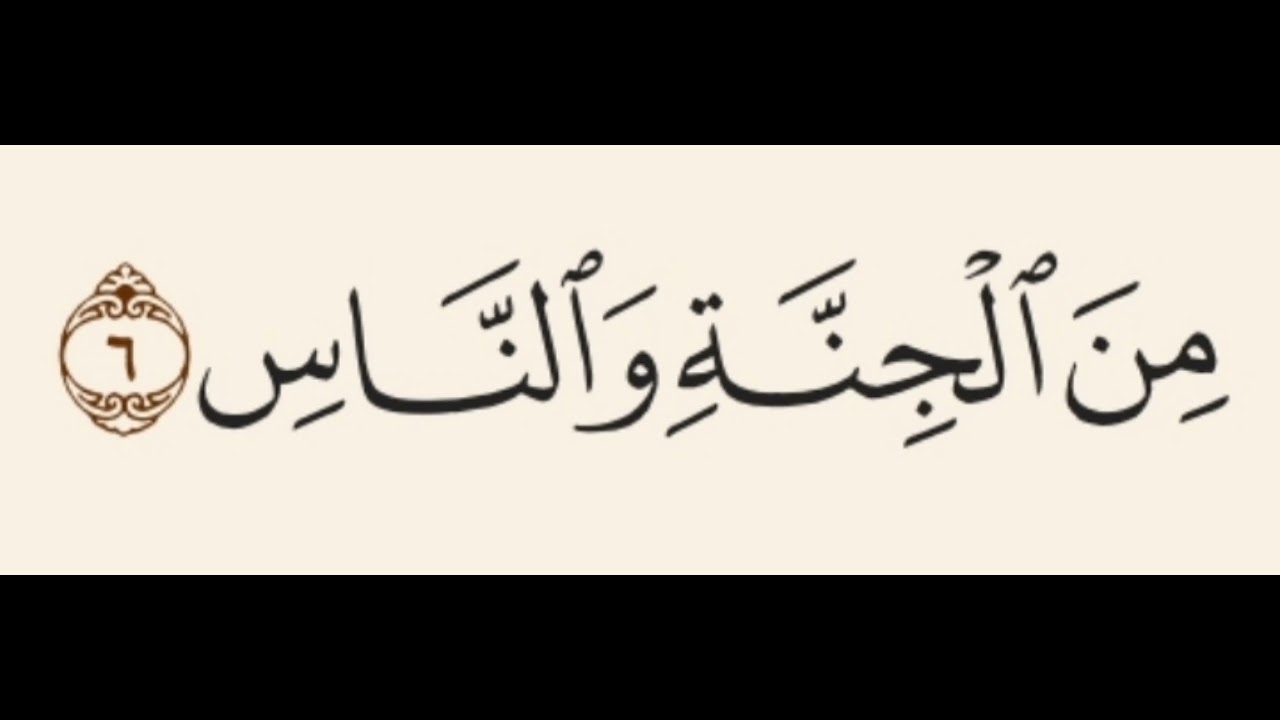 مِنَ ٱلۡجِنَّةِ وَٱلنَّاسِ ٦